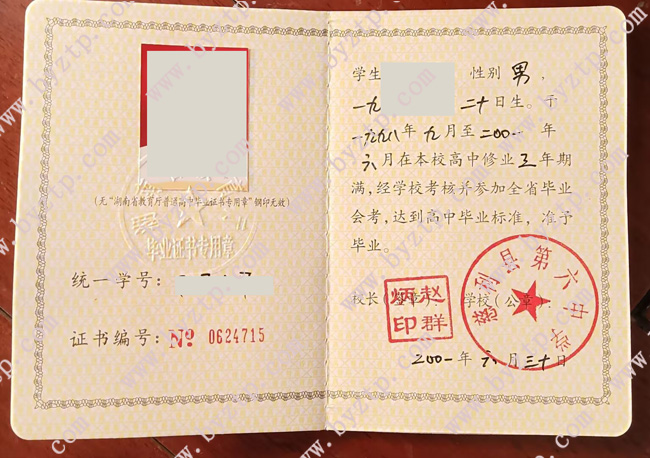 (无"湖南省教育厅普通高中毕业证书专用章"钢印无效)
毕业证书专用章
统一学号:
证书编号: № 0624715
学生 性别 男,
一九 二十日生。于
一九九八年 九月至二00一年
六月在本校高中修业三年期
满,经学校考核并参加全省毕业
会考,达到高中毕业标准,准予
毕业。
校长(签章): 学校(公章):
赵群炳印
慈利县第六中学
二00一年 六月三十日
www.byztp.com